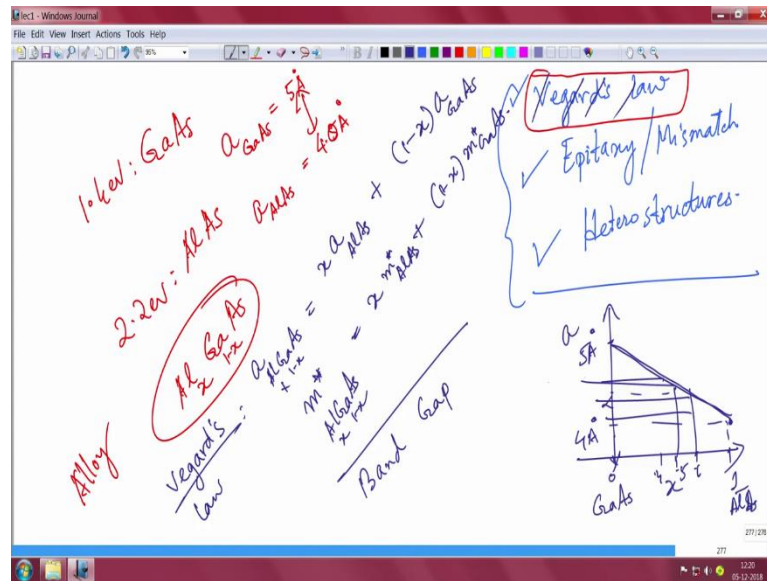 lec1 - Windows Journal
File Edit View Insert Actions Tools Help
95%
1.4eV: GaAs
a GaAs = 5Å
2.2eV: AlAs
a AlAs = 4.0Å
Alloy
Al x Ga 1-x As
Vegard's law :
a Al x Ga 1-x As = x a AlAs + (1-x) a GaAs
m* Al x Ga 1-x As = x m* AlAs + (1-x) m* GaAs
Band Gap
Vegard's law
Epitaxy / Mismatch
Heterostructures.
a
5Å
4Å
0
x
1
GaAs
AlAs
277/278
277
12:20
05-12-2018